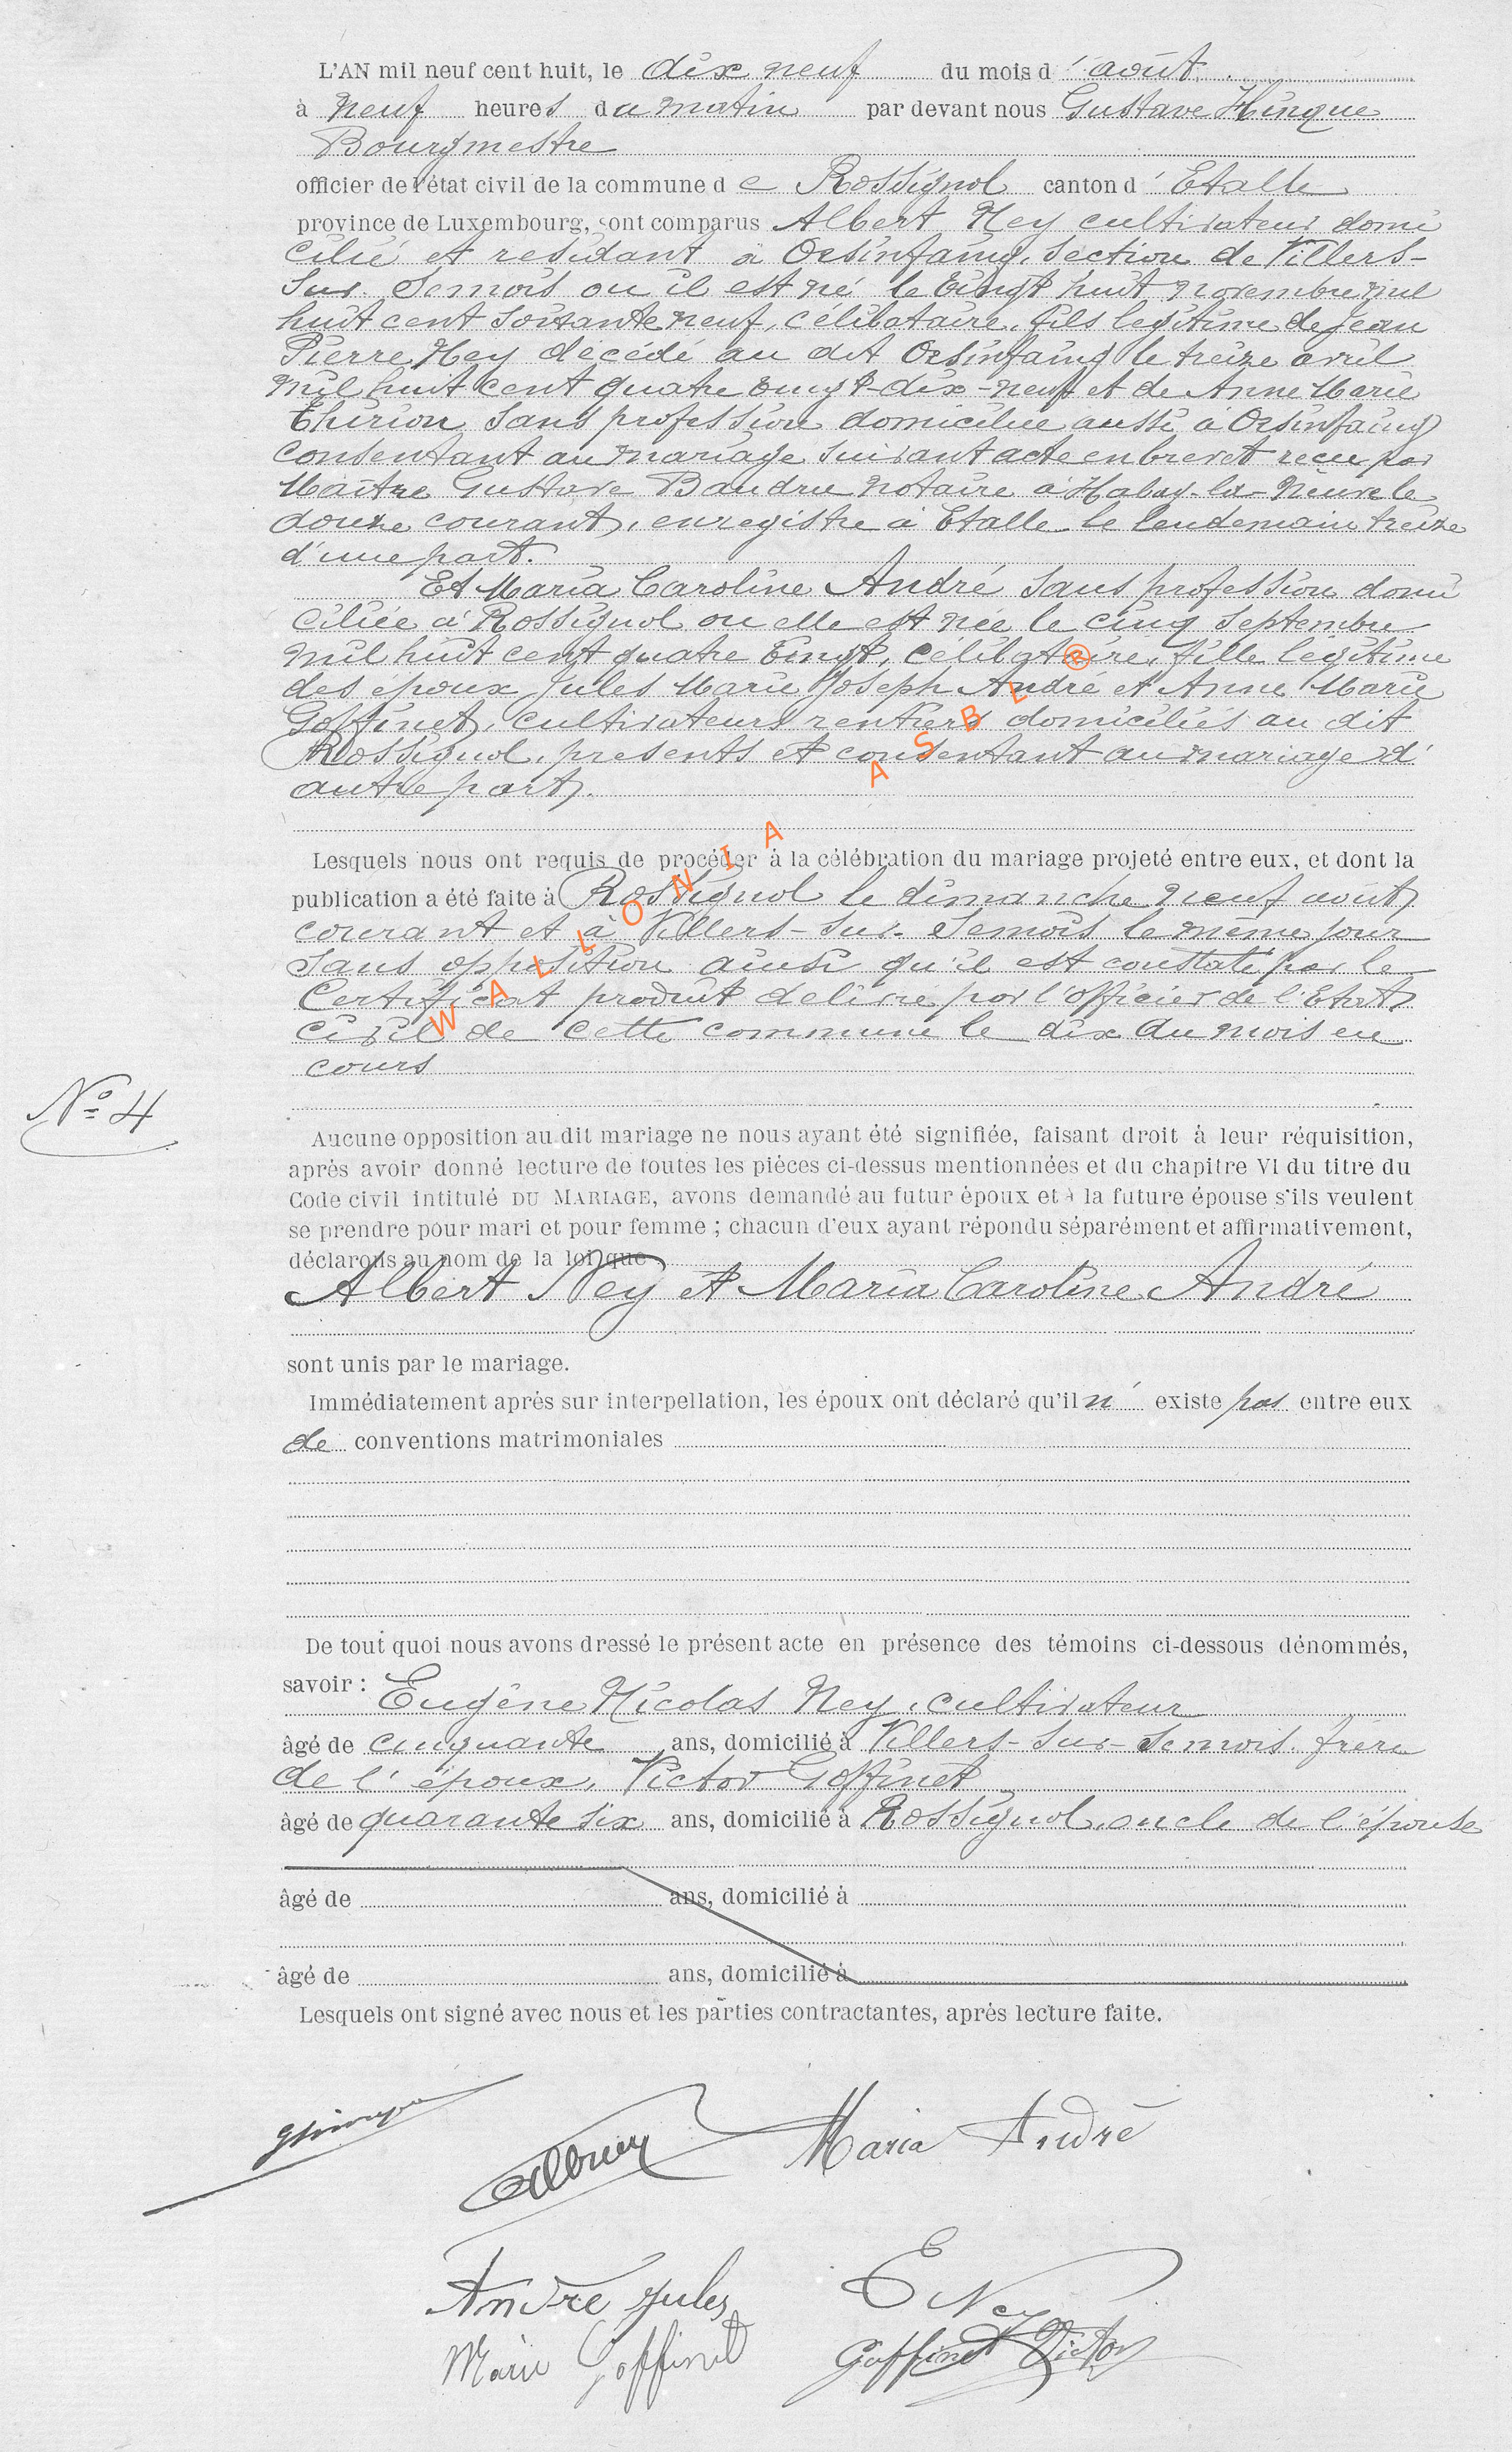 L'AN mil neuf cent huit, le dix neuf du mois d'août
à neuf heures du matin par devant nous Gustave Hinque
Bourgmestre
officier de l'état civil de la commune de Rossignol canton d'Etalle
province de Luxembourg, sont comparus Albert Ney cultivateur domi
cilié et residant à Orsinfaing, section de Villers-
sur-Semois ou il est né le vingt huit novembre mil
huit cent soixante neuf, célibataire, fils legitime de Jean
Pierre Ney decédé au dit Orsinfaing le treize avril
mil huit cent quatre vingt-dix-neuf et de Anne Marie
Thirion sans profession domiciliée aussi à Orsinfaing
consentant au mariage suivant acte en brevet recu par
Maître Gustave Baudru notaire à Habay-la-Neuve le
douze courant, enregistre à Etalle le lendemain treize
d'une part.
Et Maria Caroline André sans profession domi
ciliée à Rossignol ou elle est née le cinq Septembre
mil huit cent quatre vingt, célibataire, fille légitime
des époux Jules Marie Joseph André et Anne Marie
Goffinet, cultivateurs rentiers domiciliés au dit
Rossignol, presents et consentant au mariage d'
autre part.
WALLONIA ASBL ®
Lesquels nous ont requis de procéder à la célébration du mariage projeté entre eux, et dont la
publication a été faite à Rossignol le dimanche neuf août
courant et à Villers-sur-Semois le même jour
sans opposition ainsi qu'il est constaté par le
Certificat produit delivre par l'officier de l'Etat
civil de cette commune le dix du mois en
cours
N° 4
Aucune opposition au dit mariage ne nous ayant été signifiée, faisant droit à leur réquisition,
après avoir donné lecture de toutes les pièces ci-dessus mentionnées et du chapitre VI du titre du
Code civil intitulé DU MARIAGE, avons demandé au futur époux et à la future épouse s'ils veulent
se prendre pour mari et pour femme ; chacun d'eux ayant répondu séparément et affirmativement,
déclarons au nom de la loi que
Albert Ney et Maria Caroline André
sont unis par le mariage.
Immédiatement après sur interpellation, les époux ont déclaré qu'il n' existe pas entre eux
de conventions matrimoniales
De tout quoi nous avons dressé le présent acte en présence des témoins ci-dessous dénommés,
savoir : Eugène Nicolas Ney, cultivateur
âgé de cinquante ans, domicilié à Villers-sur-Semois. frère
de l'époux, Victor Goffinet
âgé de quarante six ans, domicilié à Rossignol, oncle de l'épouse
âgé de ans, domicilié à
âgé de ans, domicilié à
Lesquels ont signé avec nous et les parties contractantes, après lecture faite.
GHinque
Maria André
André Jules
E Ney
Marie Goffinet
Goffinet Victor